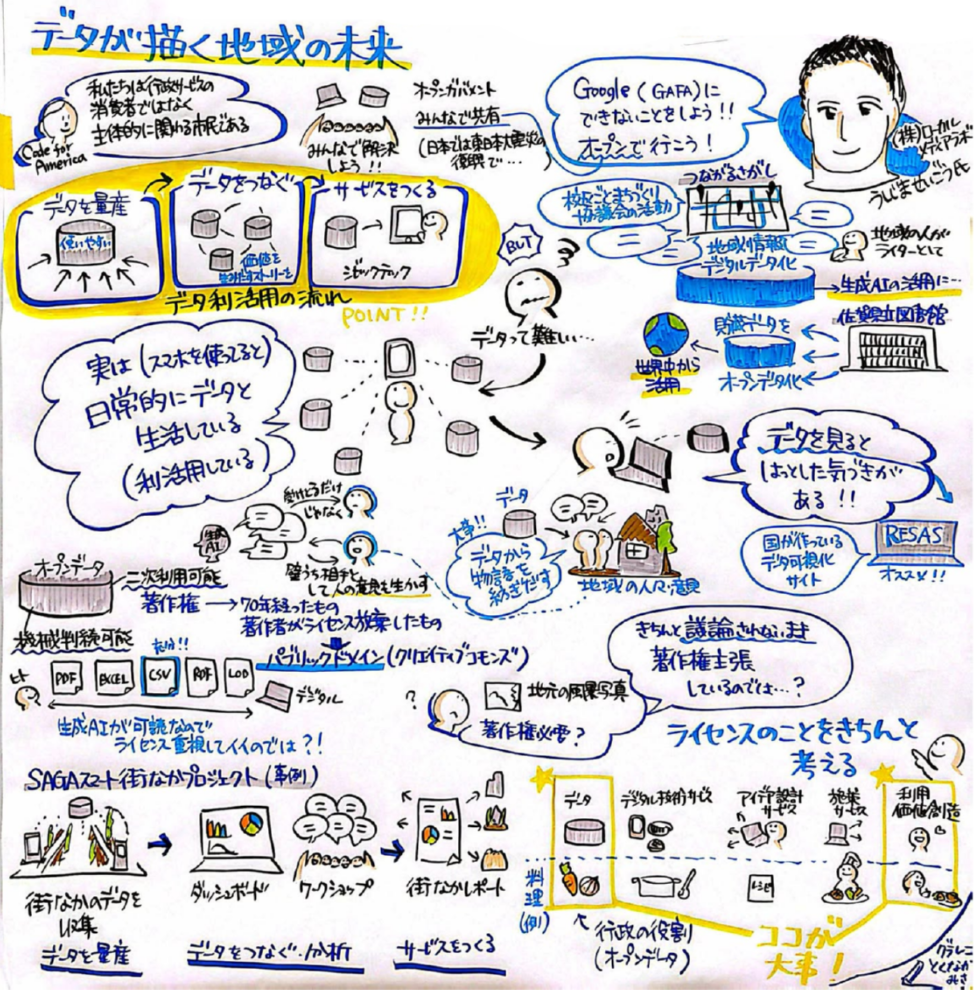 データが描く地域の未来
私たちは行政サービスの
消費者ではなく
主体的に関わる市民である
Code for
America
オープンガバメント
みんなで共有
(日本では東日本大震災の
復興で…
みんなで解決
しよう!!
Google(GAFA)に
できないことをしよう!!
オープンで行こう!
(株)ローカル
メディアラボ
うしじませいこう氏
データを量産
使いやすい
データをつなぐ
価値を
生みだすストーリーを
サービスをつくる
シビックテック
データ利活用の流れ
POINT!!
BUT
データって難しい…
つながるさがし
校区ごとまちづくり
協議会の活動
地域情報
デジタルデータ化
地域の人が
ライターとして
生成AIの活用に…
佐賀県立図書館
貯蔵データを
オープンデータ化
世界中から
活用
実は(スマホを使ってると)
日常的にデータと
生活している
(利活用している)
データを見ると
はっとした気づきが
ある!!
国が作っている
データ可視化
サイト
RESAS
オススメ!!
生成
AI
受けとるだけ
じゃなく
壁うち相手と
して人の意思を生かす
大事!!
データから
物語を
紡ぎだす
データ
地域の人に意見
オープンデータ
二次利用可能
著作権
70年経ったもの
著作者がライセンス放棄したもの
パブリックドメイン(クリエイティブコモンズ)
機械判読可能
ヒト
PDF
EXCEL
CSV
RDF
LOD
デジタル
生成AIが可読なので
ライセンス重視してイイのでは?!
きちんと議論されないまま
著作権主張
しているのでは…?
?
地元の風景写真
著作権必要?
ライセンスのことをきちんと
考える
SAGAスマート街なかプロジェクト(事例)
街なかのデータを
収集
データを量産
ダッシュボード
ワークショップ
データをつなぐ・分析
街なかレポート
サービスをつくる
データ
デジタル技術サービス
アイデア設計
サービス
施策
サービス
利用
価値創造
料理
(例)
レシピ
行政の役割
(オープンデータ)
ココが
大事!
グラレコ
とくながみさ